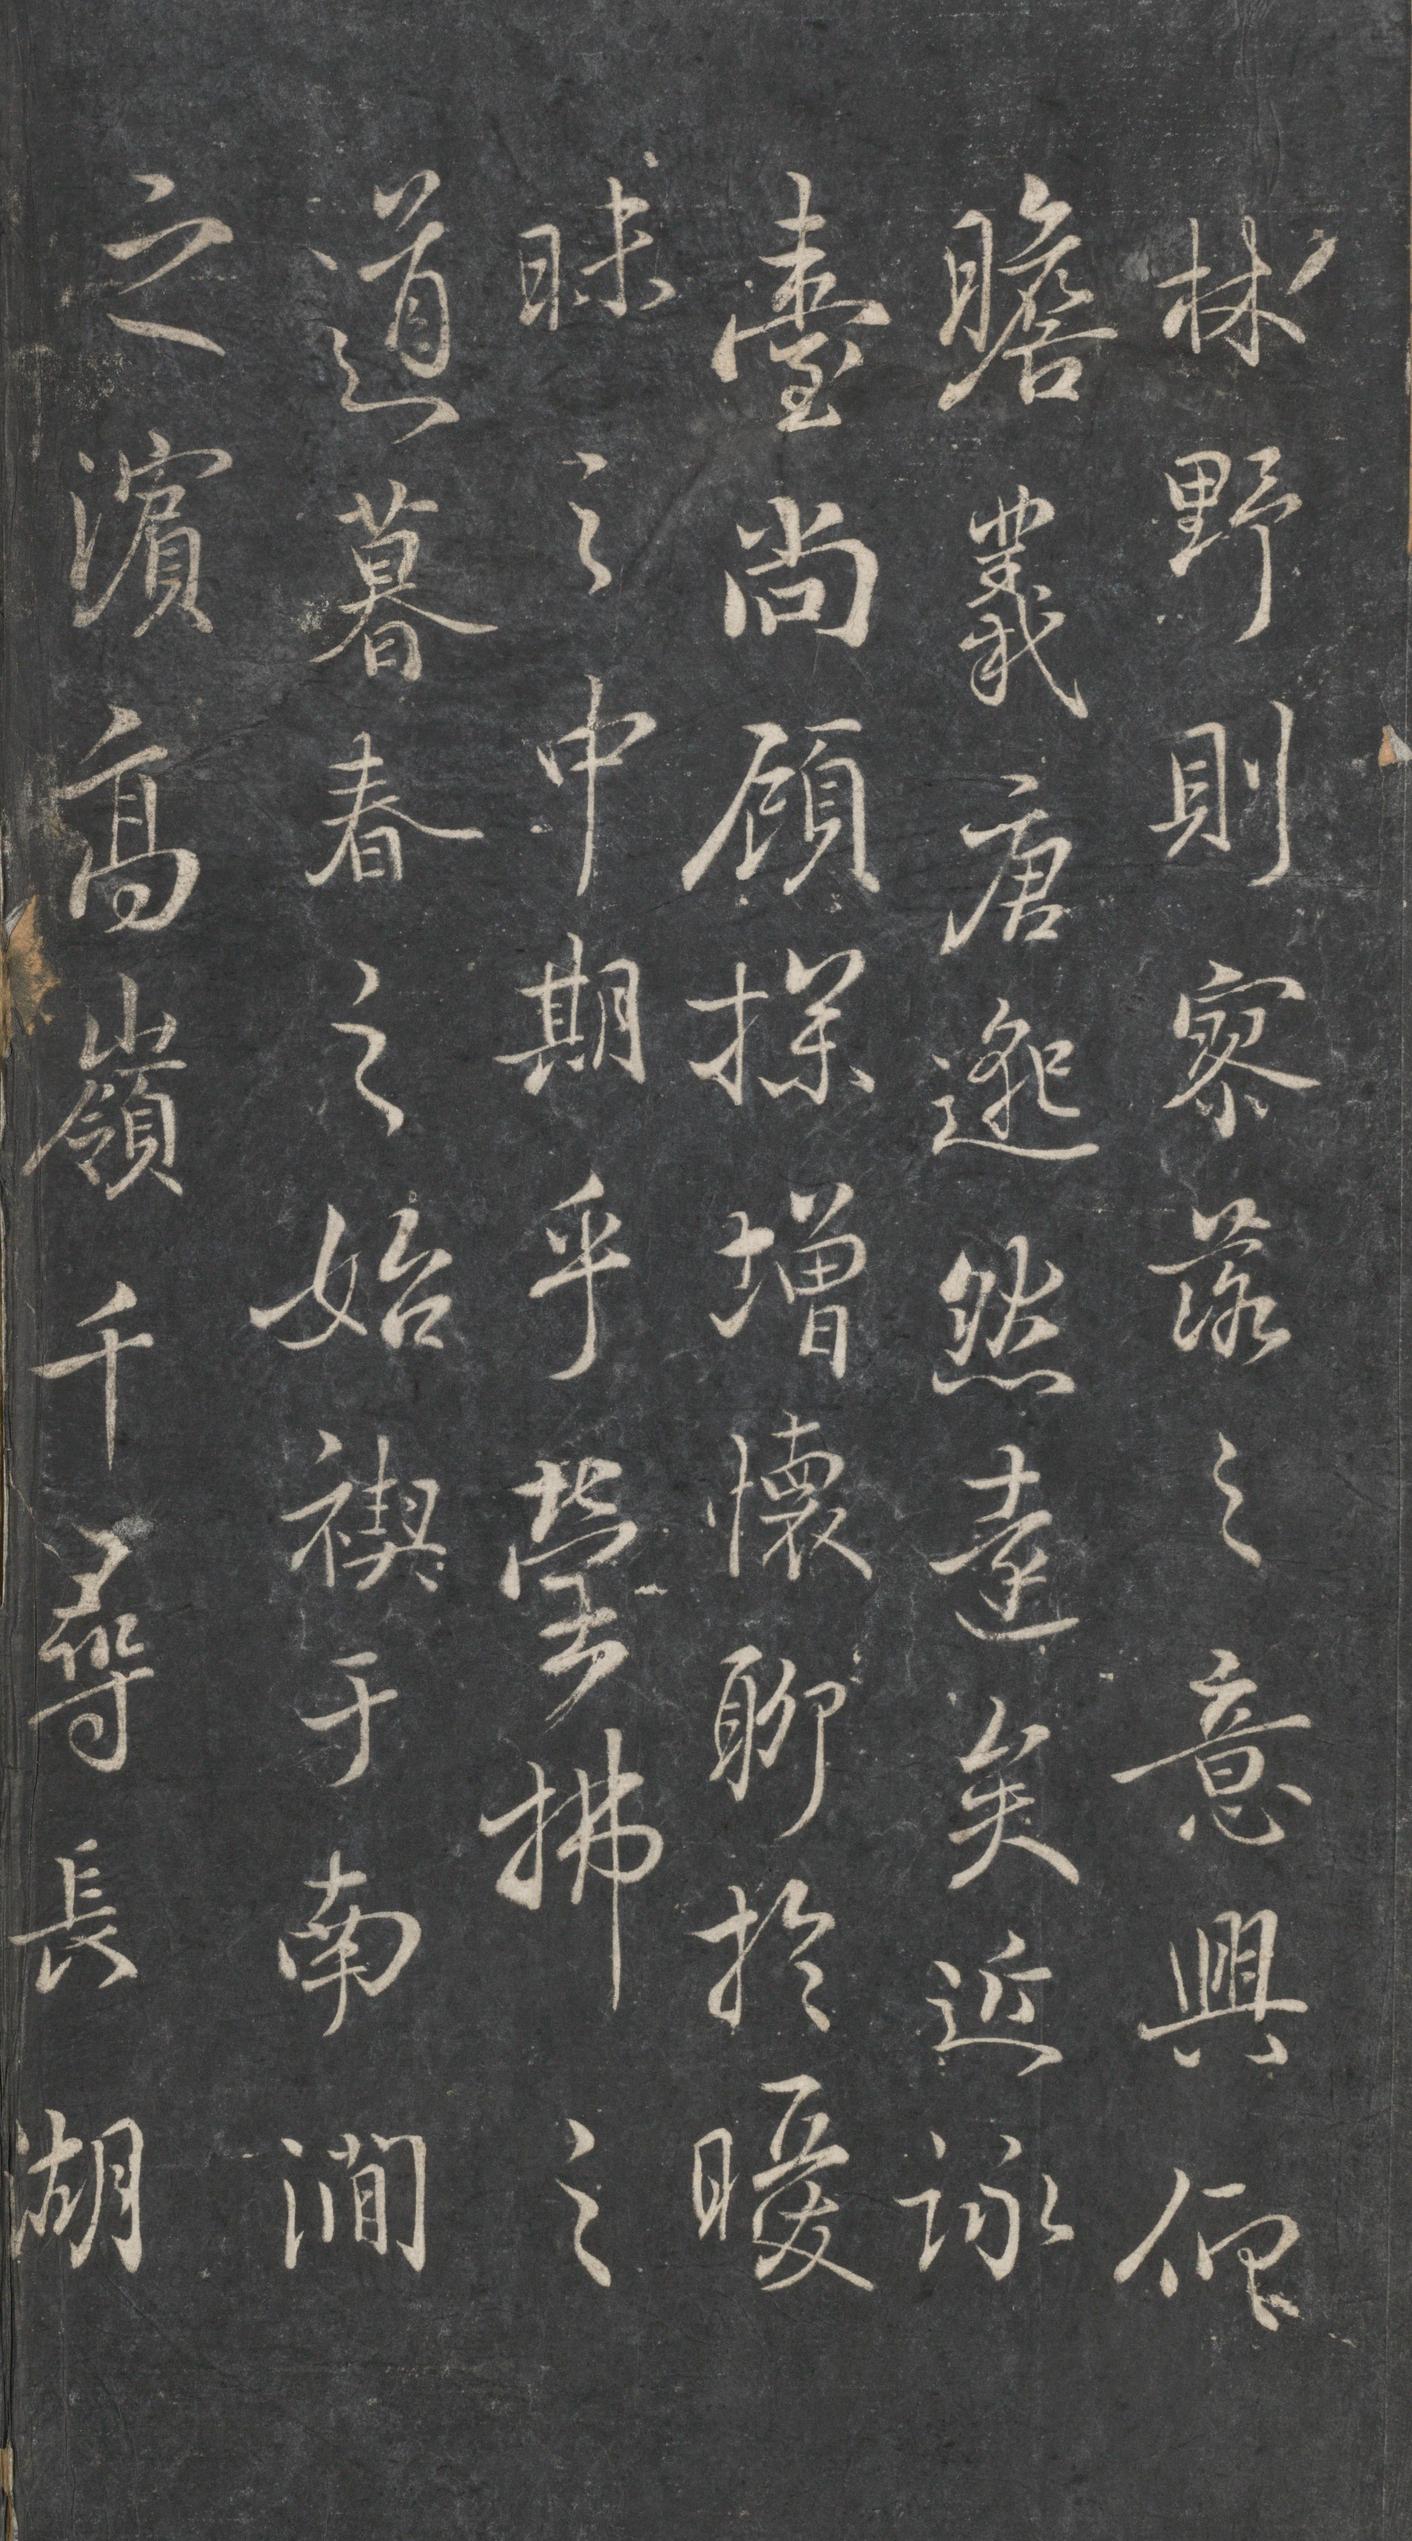 林野則寥落之意興仰
瞻羲唐邈然遠矣近詠
臺尚顧探增懷聊於曖
昧之中期乎瑩拂之
道暮春之始禊于南澗
之濱高嶺千尋長湖